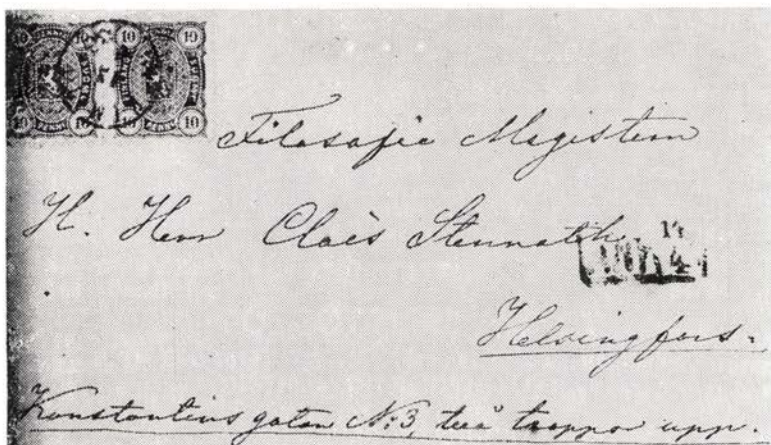 10 10 10 10
10 10 10 10
Filosofie Magistern
H. Herr Claës
Helsingfors.
Konstantins gatan N:3, två trappor upp.